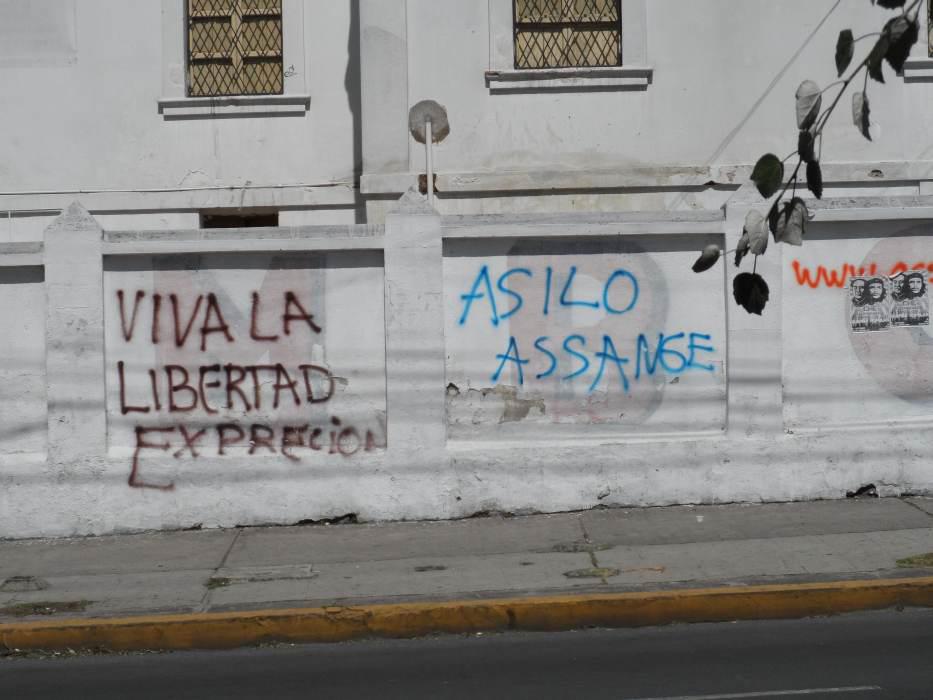 VIVA LA
LIBERTAD
EXPRECION
ASILO
ASSANGE
www.